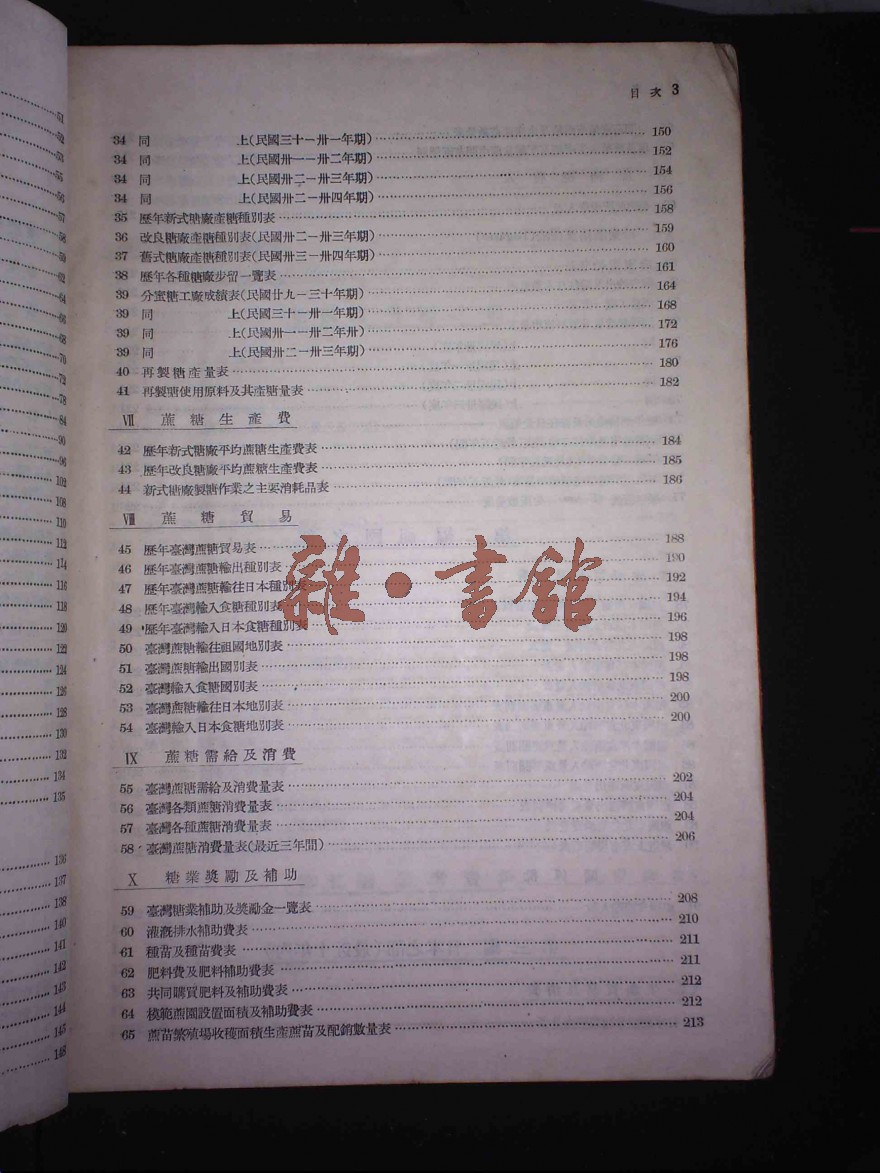 51
52
53
55
56
56
57
58
59
62
64
66
68
70
72
78
84
90
96
102
108
110
112
114
116
118
120
122
124
126
128
130
132
134
135
136
137
138
140
141
142
143
144
145
148
目 次 3
34 同 上(民國三十一卅一年期) 150
34 同 上(民國卅一一卅二年期) 152
34 同 上(民國卅二一卅三年期) 154
34 同 上(民國卅二一卅四年期) 156
35 歷年新式糖廠產糖種別表 158
36 改良糖廠產糖種別表(民國卅二一卅三年期) 159
37 舊式糖廠產糖種別表(民國卅三一卅四年期) 160
38 歷年各種糖廠步留一覽表 161
39 分蜜糖工廠成績表(民國廿九一三十年期) 164
39 同 上(民國三十一卅一年期) 168
39 同 上(民國卅一一卅二年卅) 172
39 同 上(民國卅二一卅三年期) 176
40 再製糖產量表 180
41 再製糖使用原料及其產糖量表 182
Ⅶ 蔗糖生產費
42 歷年新式糖廠平均蔗糖生產費表 184
43 歷年改良糖廠平均蔗糖生產費表 185
44 新式糖廠製糖作業之主要消耗品表 186
Ⅷ 蔗糖貿易
45 歷年臺灣蔗糖貿易表 188
46 歷年臺灣蔗糖輸出種別表 190
47 歷年臺灣蔗糖輸往日本種別表 192
48 歷年臺灣輸入食糖種別表 194
49 歷年臺灣輸入日本食糖種別表 196
50 臺灣蔗糖輸往祖國地別表 198
51 臺灣蔗糖輸出國別表 198
52 臺灣輸入食糖國別表 198
53 臺灣蔗糖輸往日本地別表 200
54 臺灣輸入日本食糖地別表 200
雜·書館
Ⅸ 蔗糖需給及消費
55 臺灣蔗糖需給及消費量表 202
56 臺灣各類蔗糖消費量表 204
57 臺灣各種蔗糖消費量表 204
58 臺灣蔗糖消費量表(最近三年間) 206
Ⅹ 糖業獎勵及補助
59 臺灣糖業補助及獎勵金一覽表 208
60 灌漑排水補助費表 210
61 種苗及種苗費表 211
62 肥料費及肥料補助費表 211
63 共同購買肥料及補助費表 212
64 模範蔗園設置面積及補助費表 212
65 蔗苗繁殖場收穫面積生產蔗苗及配銷數量表 213